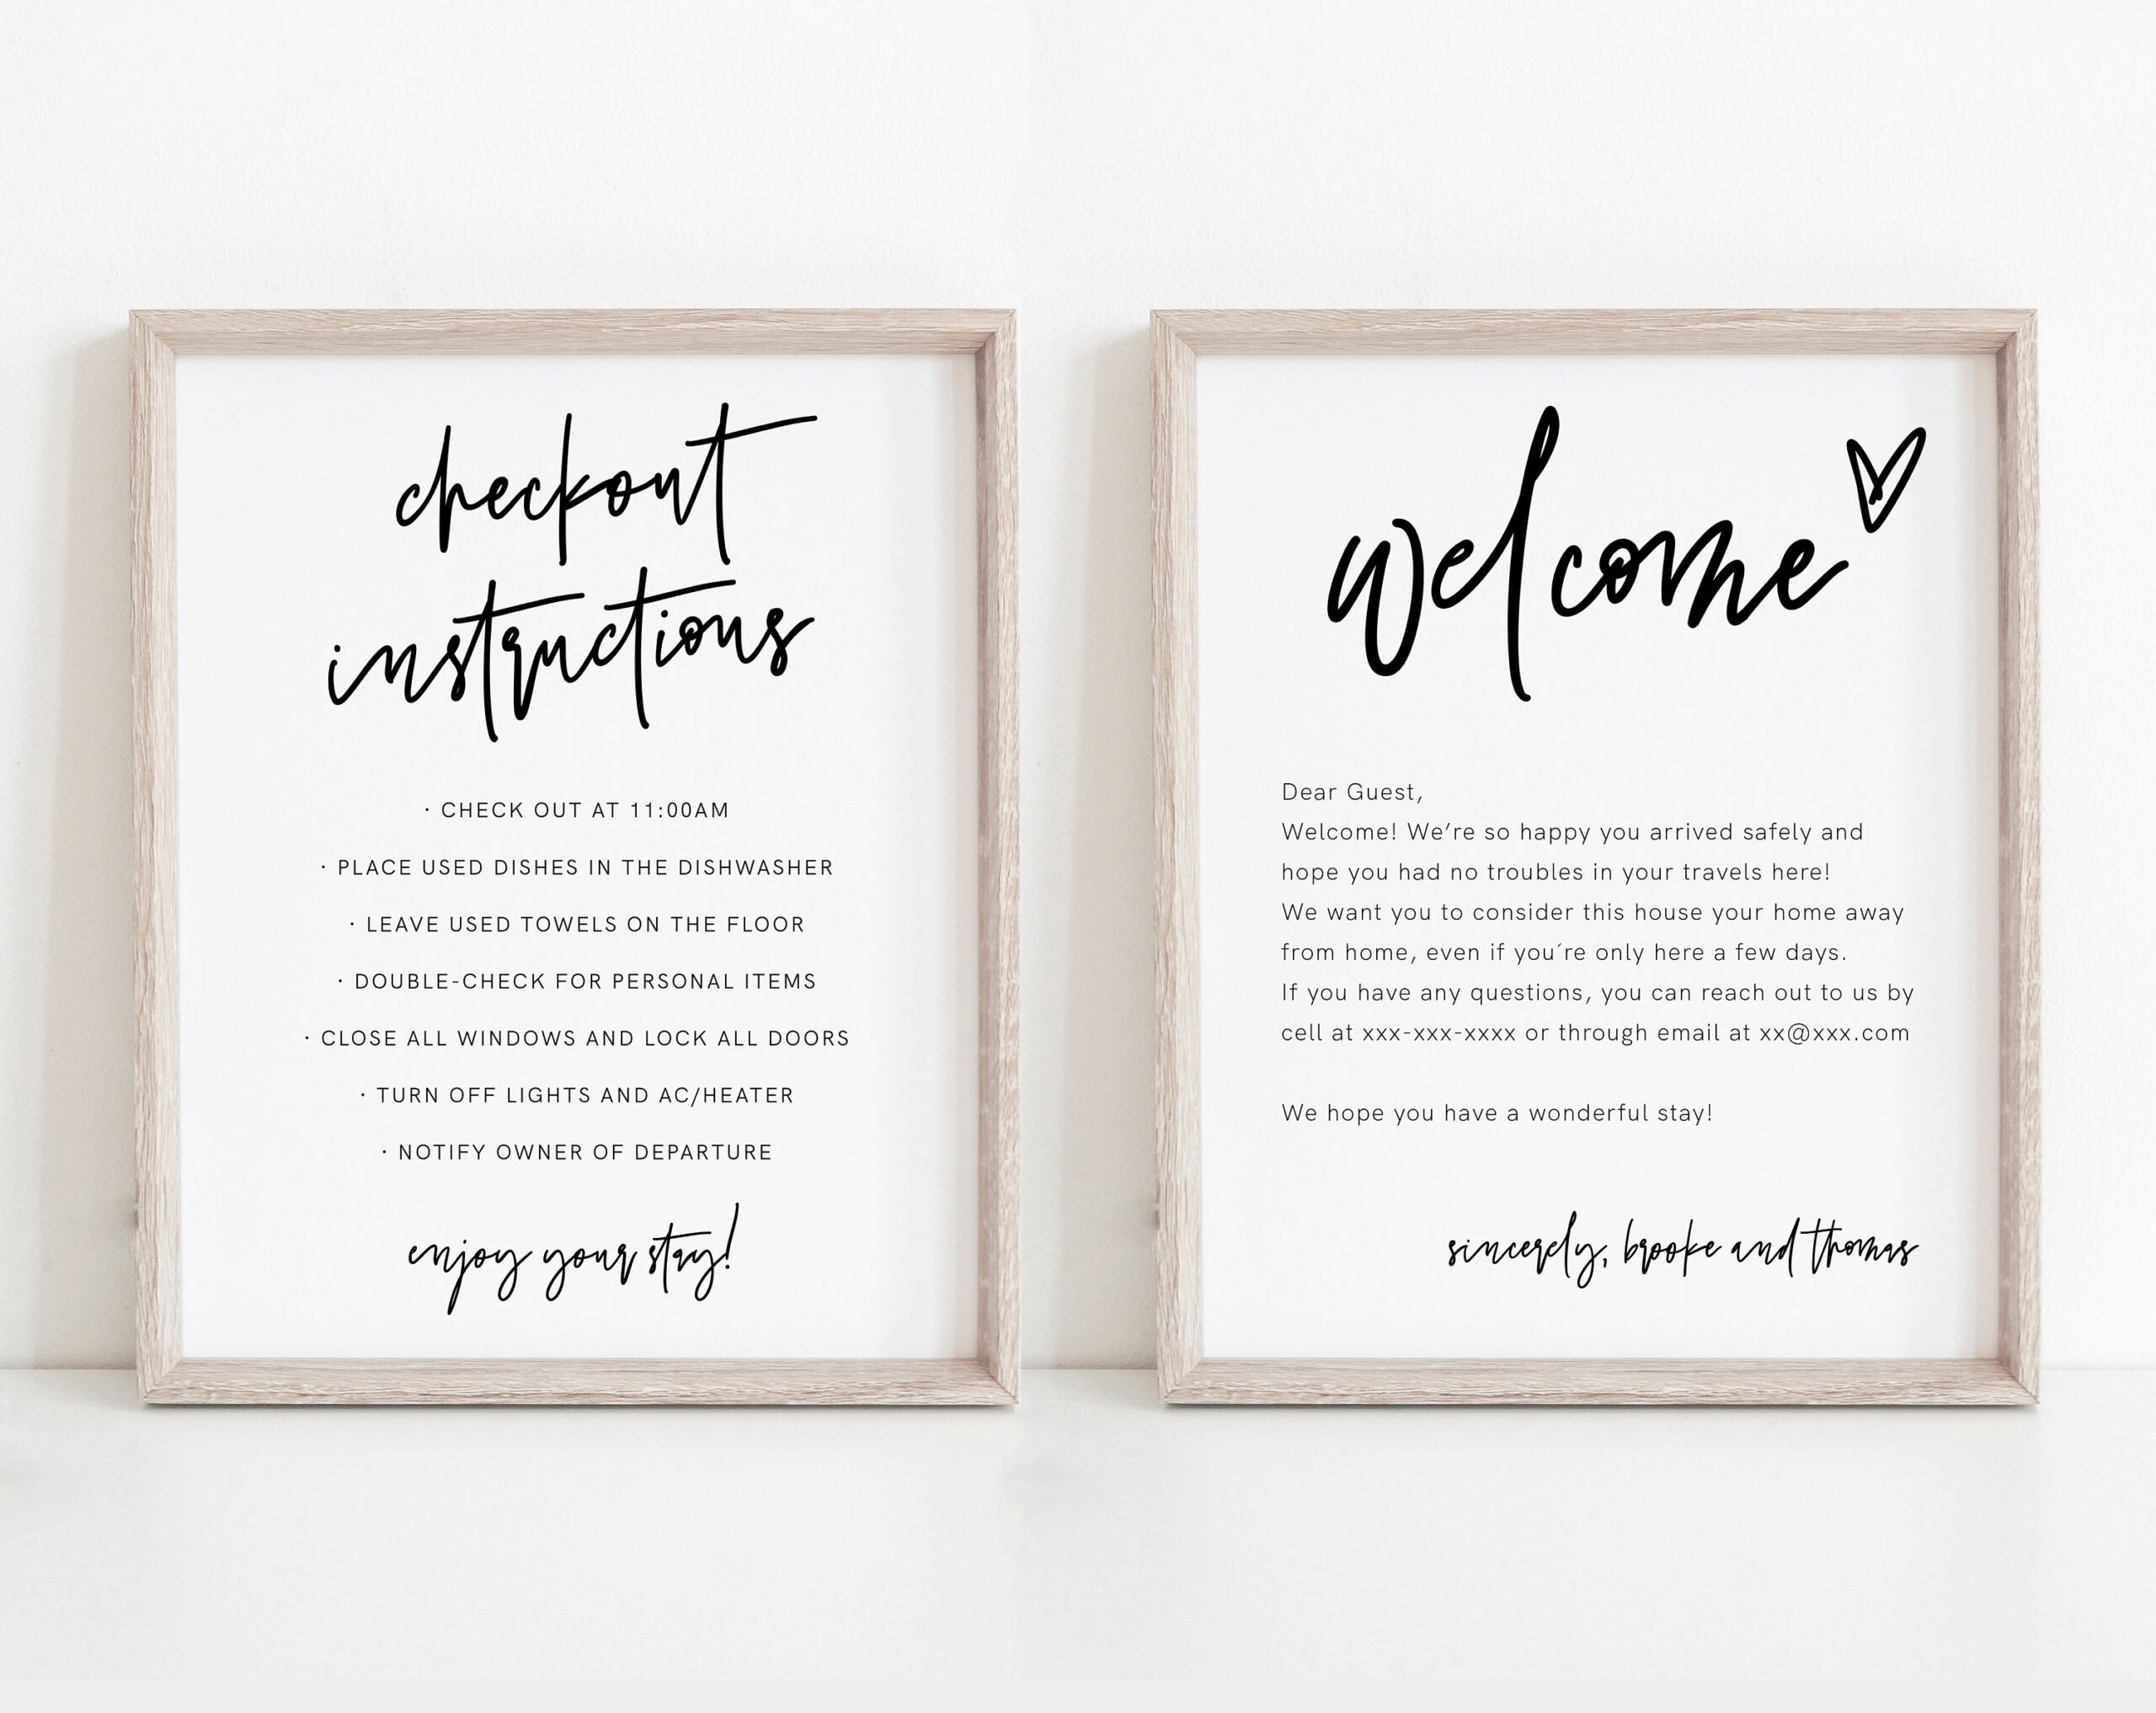 checkout
instructions
· CHECK OUT AT 11:00AM
· PLACE USED DISHES IN THE DISHWASHER
· LEAVE USED TOWELS ON THE FLOOR
· DOUBLE-CHECK FOR PERSONAL ITEMS
· CLOSE ALL WINDOWS AND LOCK ALL DOORS
· TURN OFF LIGHTS AND AC/HEATER
· NOTIFY OWNER OF DEPARTURE
enjoy your stay!
welcome
Dear Guest,
Welcome! We’re so happy you arrived safely and
hope you had no troubles in your travels here!
We want you to consider this house your home away
from home, even if you´re only here a few days.
If you have any questions, you can reach out to us by
cell at xxx-xxx-xxxx or through email at xx@xxx.com
We hope you have a wonderful stay!
sincerely, brooke and thomas